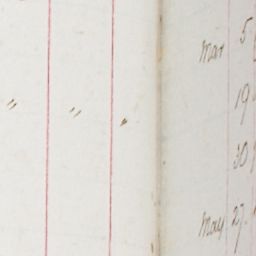 " " "
Mar 5
19
30
May 27